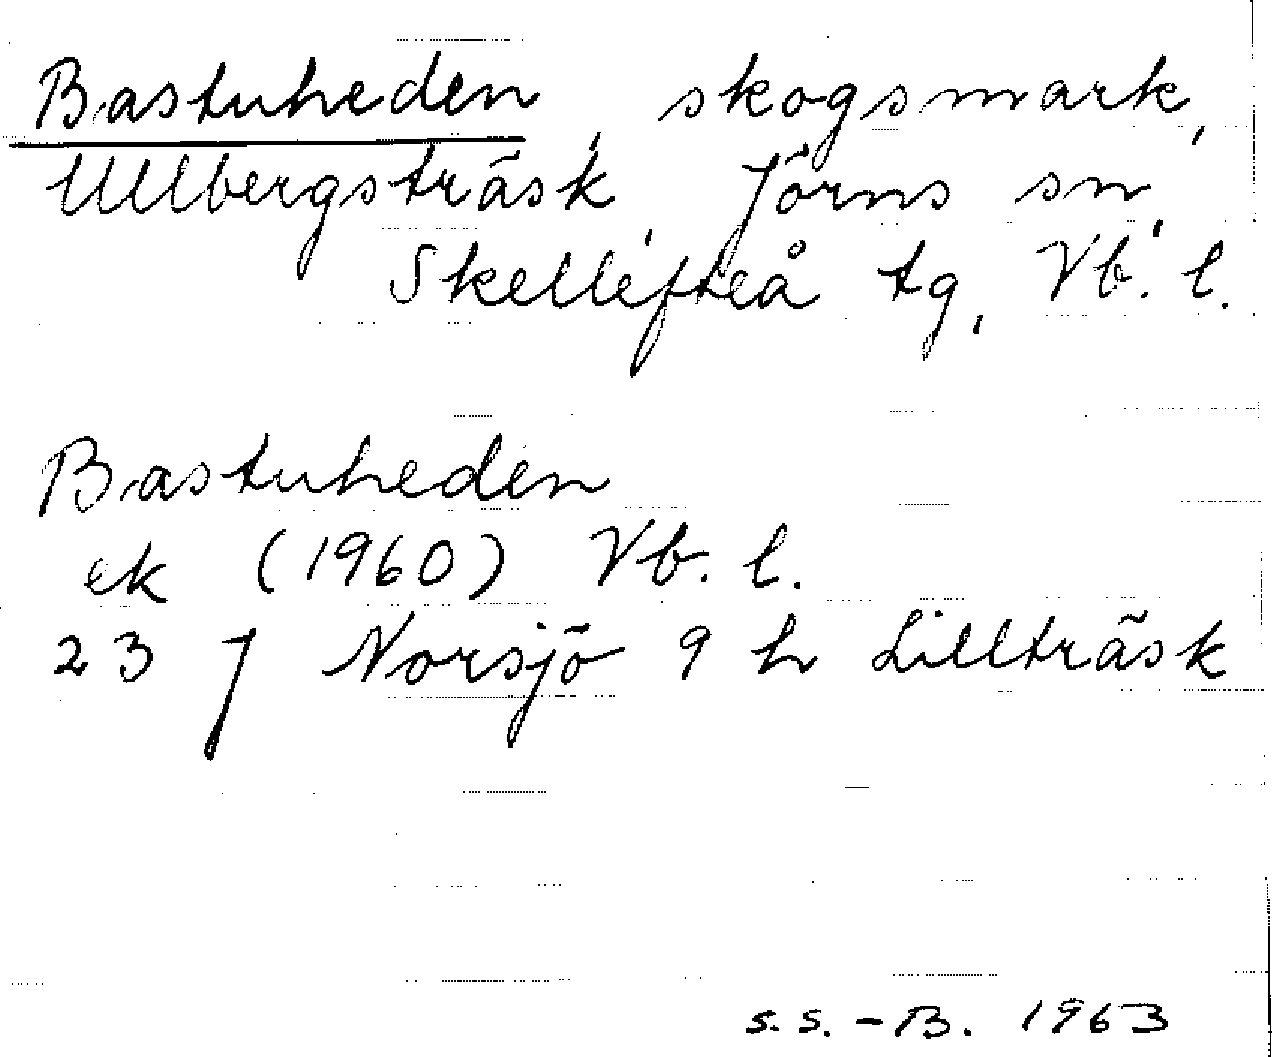 Bastuheden, skogsmark,
Ullbergsträsk, Jörns sn,
Skellefteå tg, Vb. l.
Bastuheden
ek (1960) Vb. l.
23 J Norsjö 9 h Lillträsk
S.S.-B. 1963